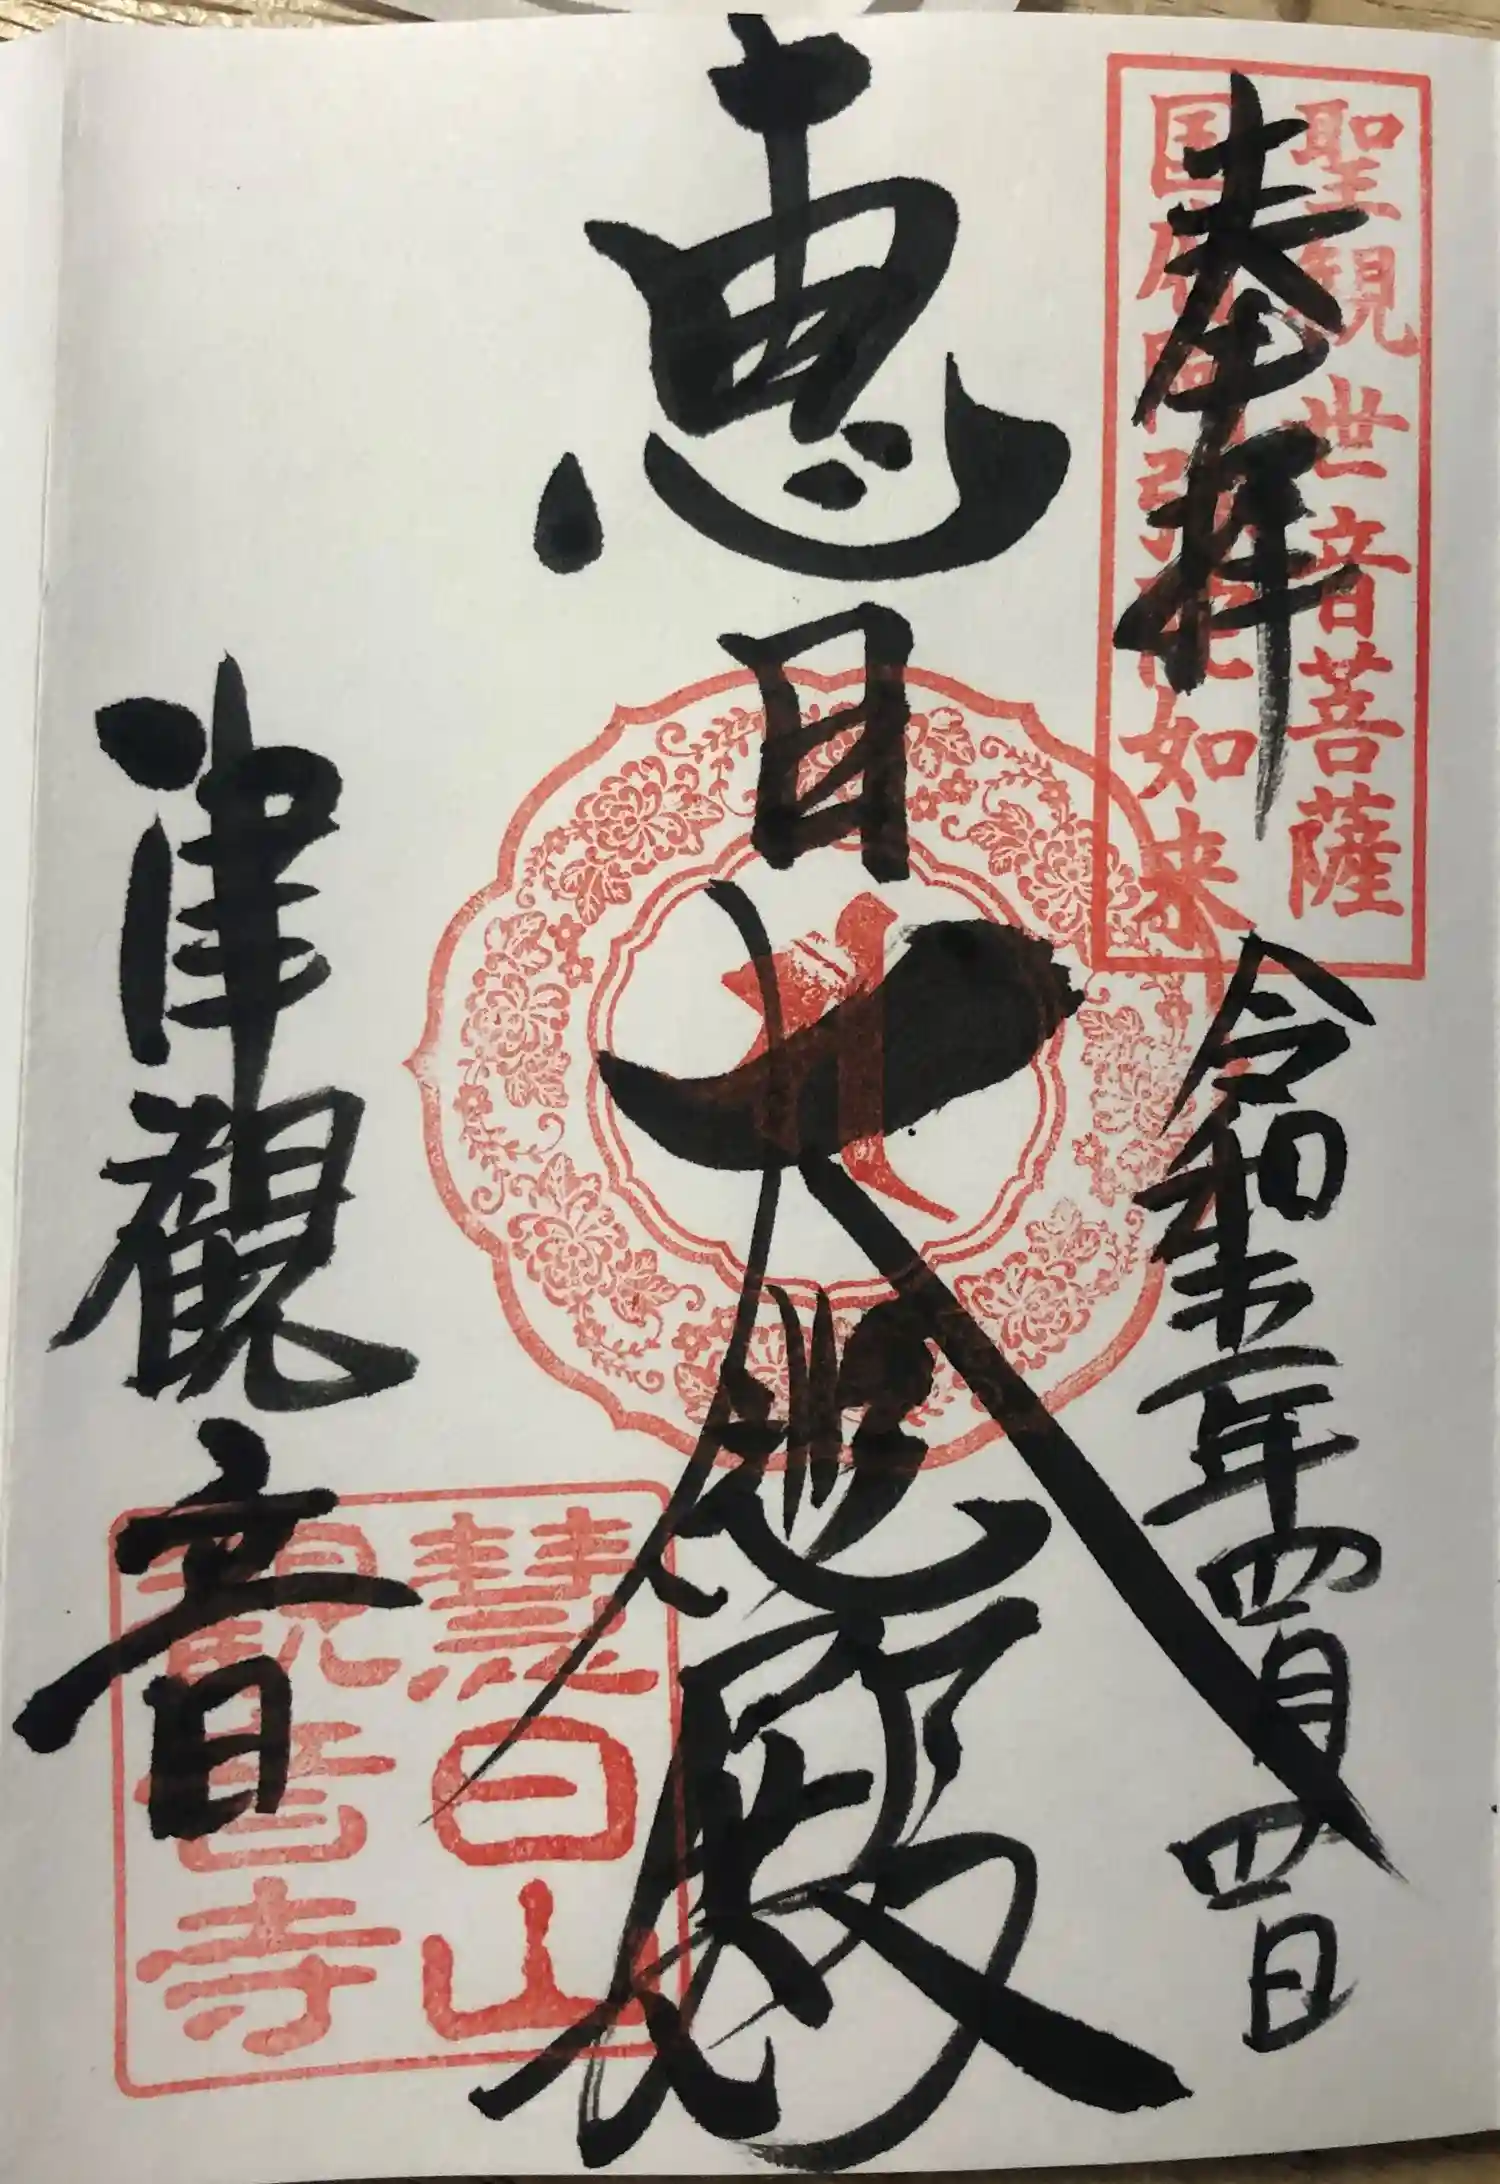 聖観世音菩薩
国府阿弥陀如来
奉拝
令和 年四月四日
恵日大悲殿
慧日山
觀音寺
津觀音